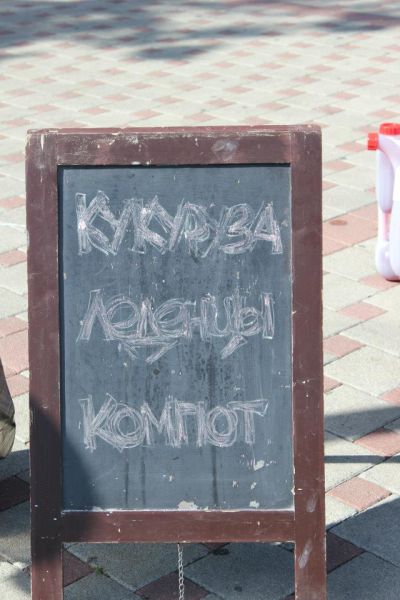 КУКУРУЗА
ЛеДеНЦЫ
КОМПОТ